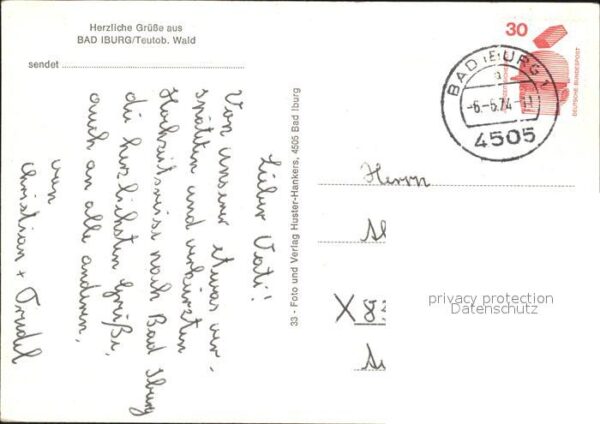 Herzliche Grüße aus
BAD IBURG/Teutob. Wald
sendet
Lieber Vati!
Von unserer etwas ver-
späteten und verkürzten
Hochzeitsreise nach Bad Iburg
die herzlichsten Grüße,
auch an alle anderen,
von
Christian + Trudel
33 - Foto und Verlag Huster-Hankers, 4505 Bad Iburg
30
DEUTSCHE BUNDESPOST
BAD IBURG 1
a
-6.-6.74-11
4505
Herrn
X 8
privacy protection
Datenschutz